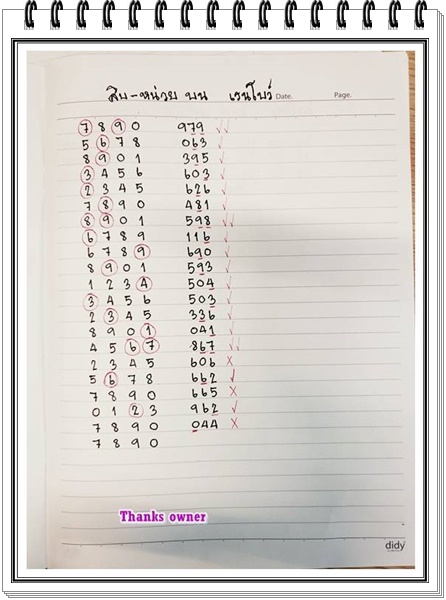 สิบ-หน่วย บน เรนโบว์ Date. Page.
7 8 9 0 979 ✓✓
5 6 7 8 063 ✓
8 9 0 1 395 ✓
3 4 5 6 603 ✓
2 3 4 5 626 ✓
7 8 9 0 481 ✓
8 9 0 1 598 ✓✓
6 7 8 9 116 ✓
6 7 8 9 690 ✓
8 9 0 1 593 ✓
1 2 3 4 504 ✓
3 4 5 6 503 ✓
2 3 4 5 336 ✓
8 9 0 1 041 ✓
4 5 6 7 867 ✓✓
2 3 4 5 606 X
5 6 7 8 662 ✓
7 8 9 0 665 X
0 1 2 3 962 ✓
7 8 9 0 044 X
7 8 9 0
Thanks owner
didy